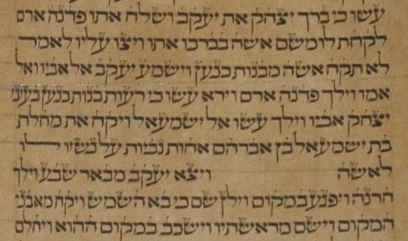 עשו כי ברך יצחק את יעקב ושלח אתו פדנה ארם
לקחת לו משם אשה בברכו אתו ויצו עליו לאמר
לא תקח אשה מבנות כנען וישמע יעקב אל אביו ואל
אמו וילך פדנה ארם וירא עשו כי רעות בנות כנען בעיני
יצחק אביו וילך עשו אל ישמעאל ויקח את מחלת
בת ישמעאל בן אברהם אחות נביות על נשיו לו
לאשה ויצא יעקב מבאר שבע וילך
חרנה ויפגע במקום וילן שם כי בא השמש ויקח מאבני
המקום וישם מראשתיו וישכב במקום ההוא ויחלם